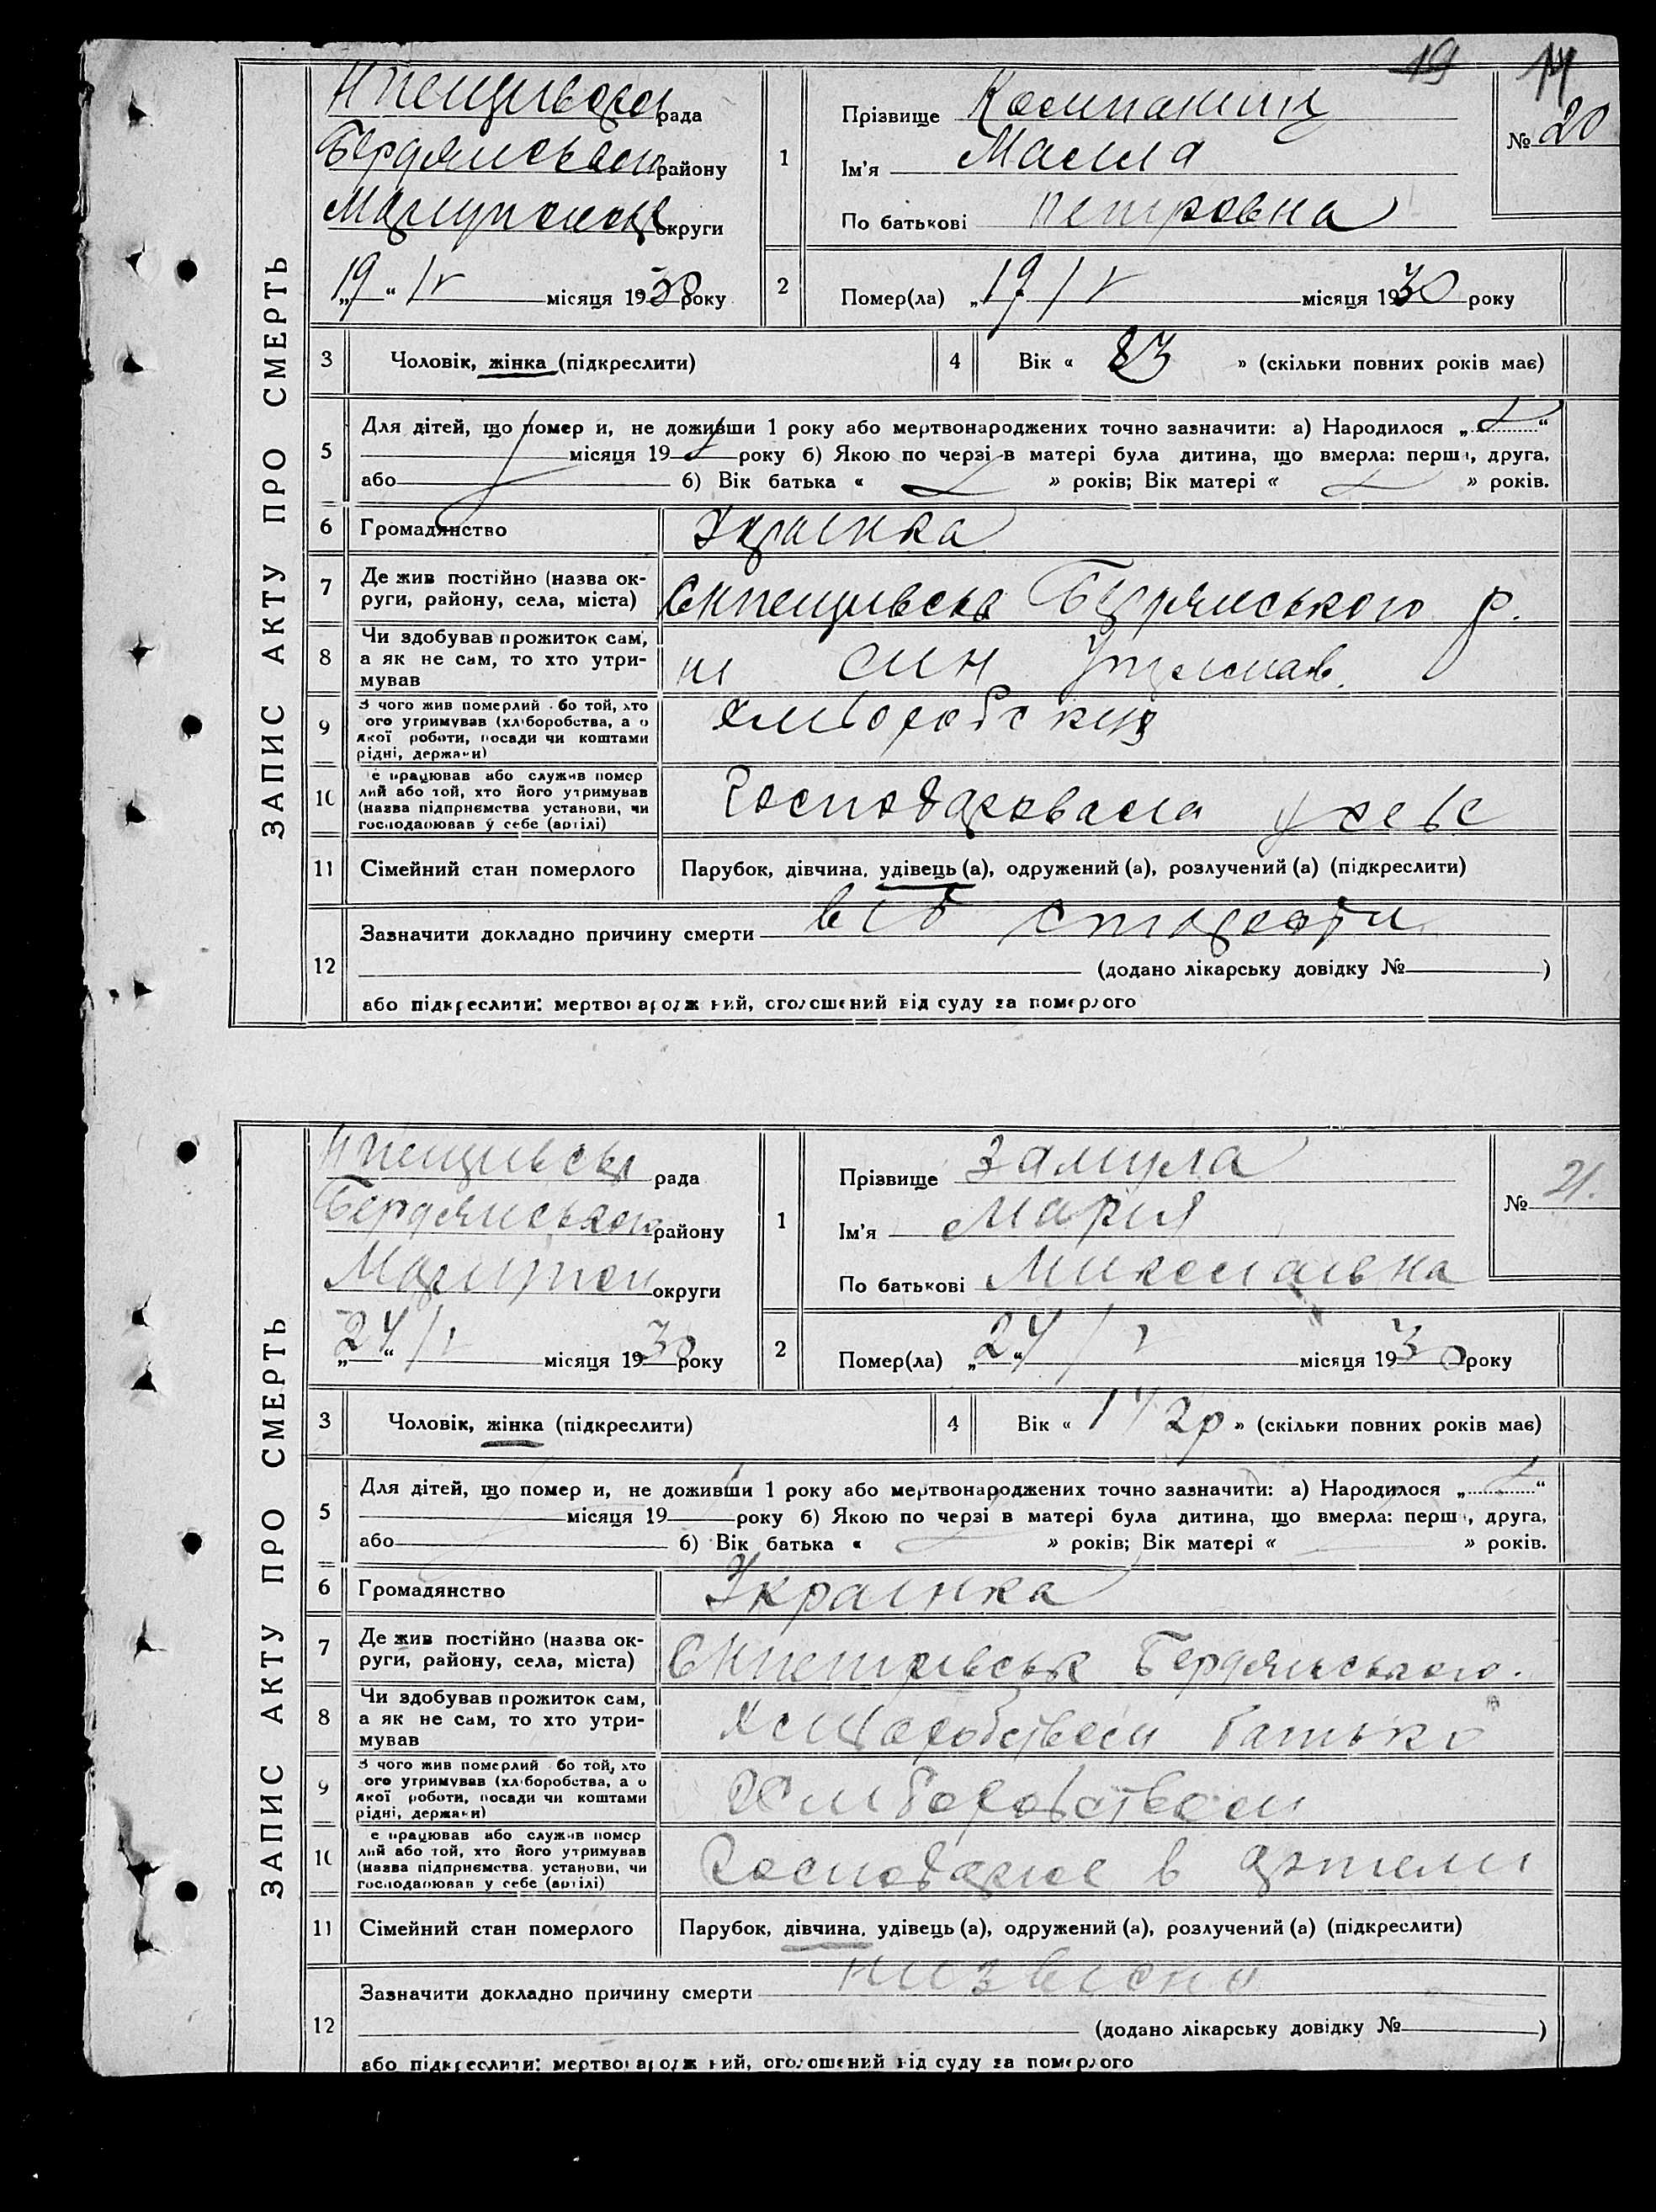 19 14
ЗАПИС АКТУ ПРО СМЕРТЬ
рада
району
округи
„19“ IV місяця 1930 року
1
Прізвище Компаниец
Ім'я
По батькові Петровна
№ 20
2
Помер(ла) „19 IV місяця 1930 року
3 Чоловік, жінка (підкреслити)
4 Вік « 83 » (скільки повних років має)
5
Для дітей, що помер и, не доживши 1 року або мертвонароджених точно зазначити: а) Народилося „ “
місяця 19 року б) Якою по черзі в матері була дитина, що вмерла: перш , друга,
або б) Вік батька « » років; Вік матері « » років.
6 Громадянство Украінка
7
Де жив постійно (назва ок-
руги, району, села, міста)
Бердянського р.
8
Чи здобував прожиток сам,
а як не сам, то хто утри-
мував
ні син
9
З чого жив померлий бо той, хто
ого утримував (хліборобства, а о
якої роботи, посади чи коштами
рідні, держави)
10
е працював або служив помер
лий або той, хто його утримував
(назва підприємства установи, чи
господарював у себе (артілі)
у себе
11 Сімейний стан померлого Парубок, дівчина, удівець (а), одружений (а), розлучений (а) (підкреслити)
12
Зазначити докладно причину смерти від старости
(додано лікарську довідку № )
або підкреслити: мертвонародж ний, оголошений від суду за померлого
ЗАПИС АКТУ ПРО СМЕРТЬ
рада
району
округи
„24“ IV місяця 1930 року
1
Прізвище Замула
Ім'я Мария
По батькові Миколаівна
№ 21.
2
Помер(ла) „24“ IV місяця 1930 року
3 Чоловік, жінка (підкреслити)
4 Вік « 1 1/2 р » (скільки повних років має)
5
Для дітей, що помер и, не доживши 1 року або мертвонароджених точно зазначити: а) Народилося „ “
місяця 19 року б) Якою по черзі в матері була дитина, що вмерла: перш , друга,
або б) Вік батька « » років; Вік матері « » років.
6 Громадянство Украінка
7
Де жив постійно (назва ок-
руги, району, села, міста)
Бердянського.
8
Чи здобував прожиток сам,
а як не сам, то хто утри-
мував
батько
9
З чого жив померлий бо той, хто
ого утримував (хліборобства, а о
якої роботи, посади чи коштами
рідні, держави)
10
е працював або служив помер
лий або той, хто його утримував
(назва підприємства установи, чи
господарював у себе (артілі)
в артели
11 Сімейний стан померлого Парубок, дівчина, удівець (а), одружений (а), розлучений (а) (підкреслити)
12
Зазначити докладно причину смерти
(додано лікарську довідку № )
або підкреслити: мертвонародж ний, оголошений від суду за померлого